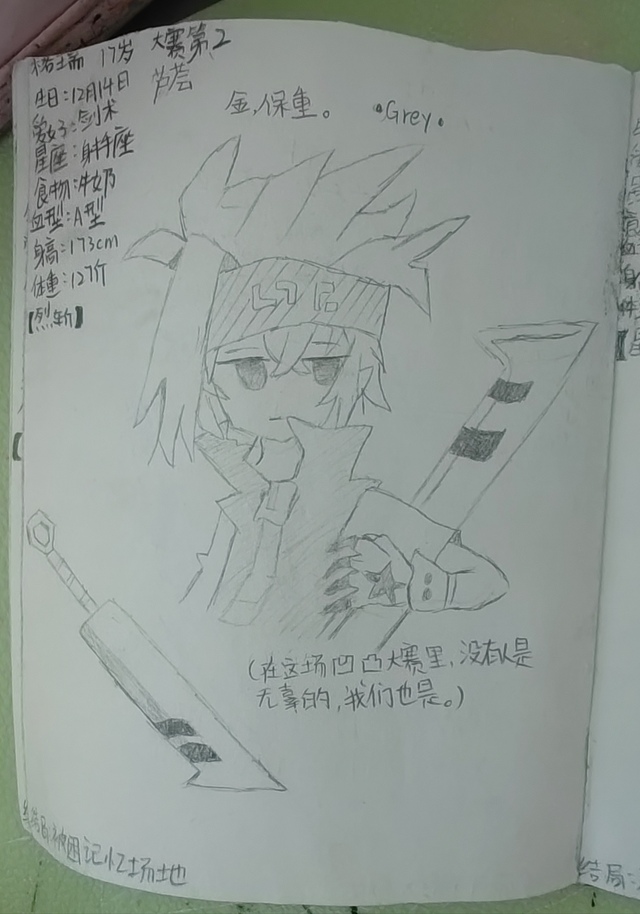 格瑞 17岁 大赛第2
芦荟
生日:12月14日
爱好:剑术
星座:射手座
食物:牛奶
血型:A型
身高:173cm
体重:127斤
【烈斩】
金,保重。 •Grey•
(在这场凹凸大赛里,没有人是
无辜的,我们也是。)
被困记忆场地
结局: